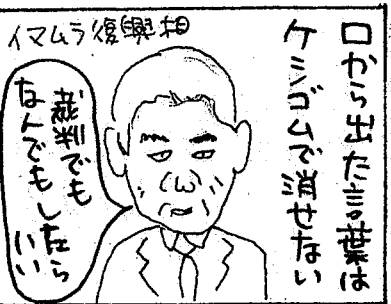 口から出た言葉は
ケシゴムで消せない
イマムラ復興相
裁判でも
なんでもしたら
いい